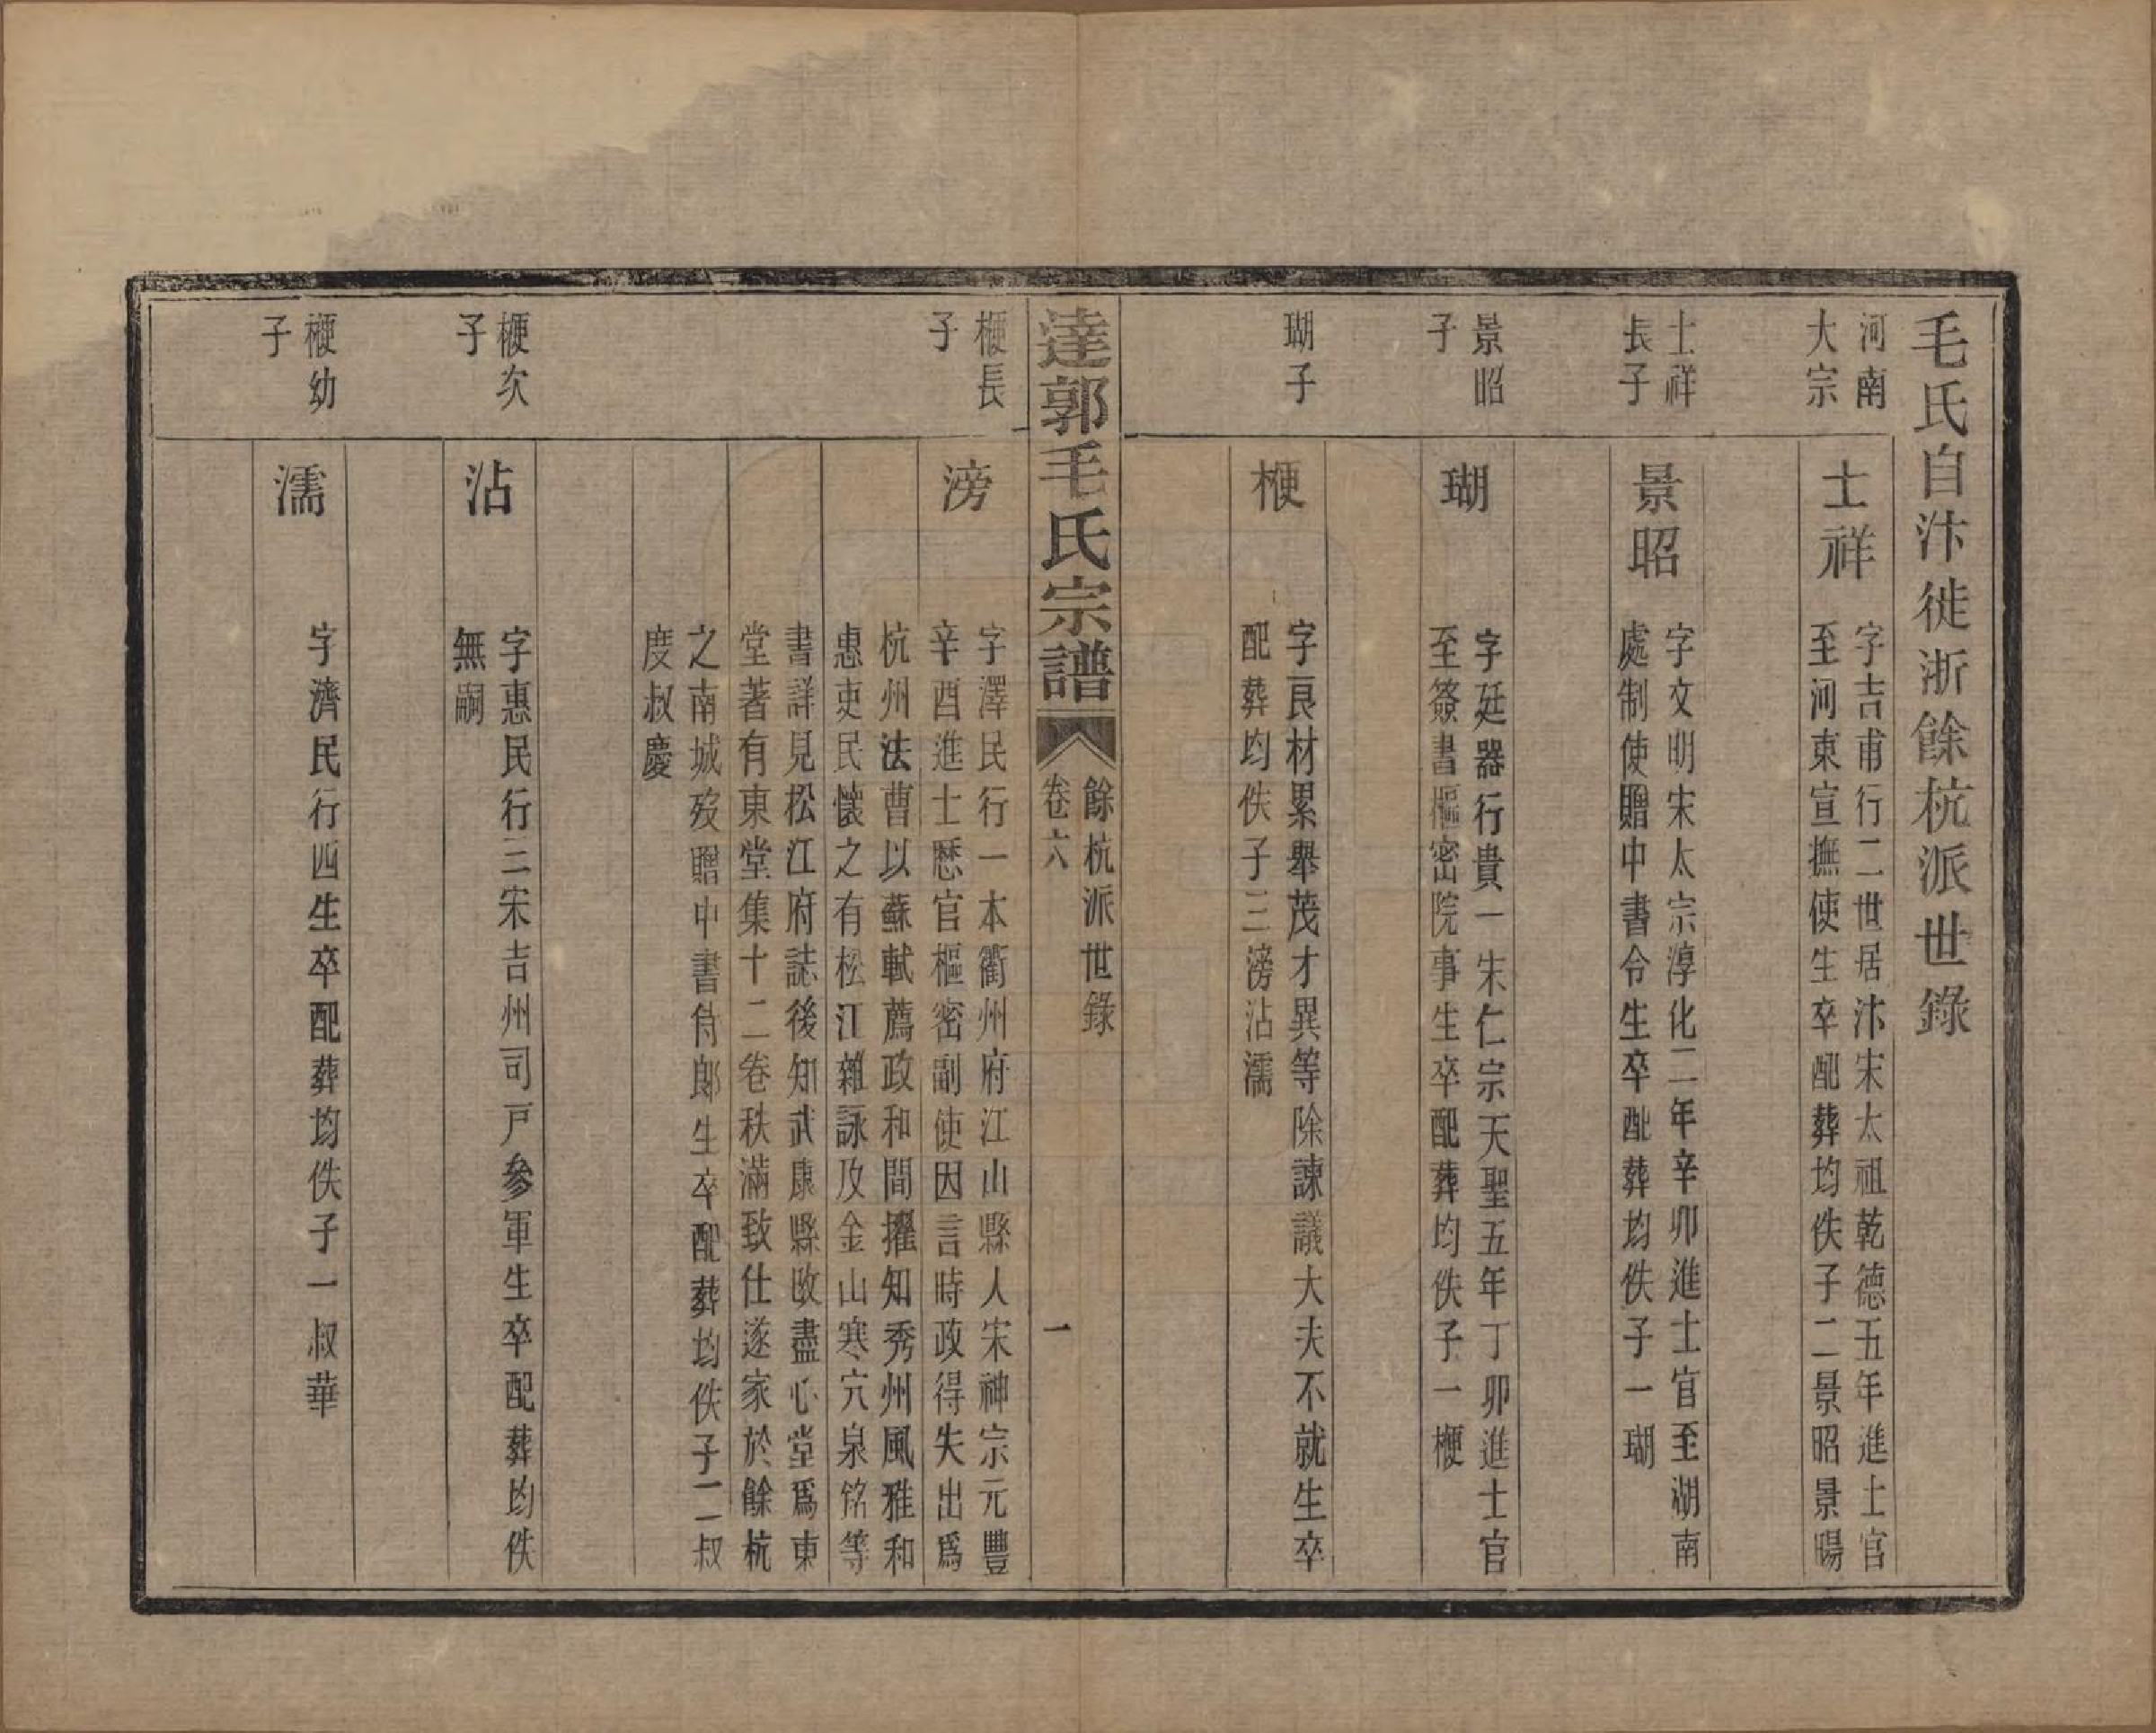 毛氏自汴徙浙餘杭派世錄
河南
大宗
士祥
字吉甫行二世居汴宋太祖乾德五年進士官
至河東宣撫使生卒配葬均佚子二景昭景暘
士祥
長子
景昭
字文明宋太宗淳化二年辛卯進士官至湖南
處制使贈中書令生卒配葬均佚子一瑚
景昭
子
瑚
字廷器行貴一宋仁宗天聖五年丁卯進士官
至簽書樞密院事生卒配葬均佚子一楩
瑚子
楩
字良材累舉茂才異等除諫議大夫不就生卒
配葬均佚子三滂沾濡
達郭毛氏宗譜
餘杭派世錄
卷六
一
楩長
子
滂
字澤民行一本衢州府江山縣人宋神宗元豐
辛酉進士歷官樞密副使因言時政得失出爲
杭州法曹以蘇軾薦政和間擢知秀州風雅和
惠吏民懷之有松江雜詠及金山寒穴泉銘等
書詳見松江府誌後知武康縣改盡心堂爲東
堂著有東堂集十二卷秩滿致仕遂家於餘杭
之南城歿贈中書侍郎生卒配葬均佚子二叔
度叔慶
楩次
子
沾
字惠民行三宋吉州司戸參軍生卒配葬均佚
無嗣
楩幼
子
濡
字濟民行四生卒配葬均佚子一叔華